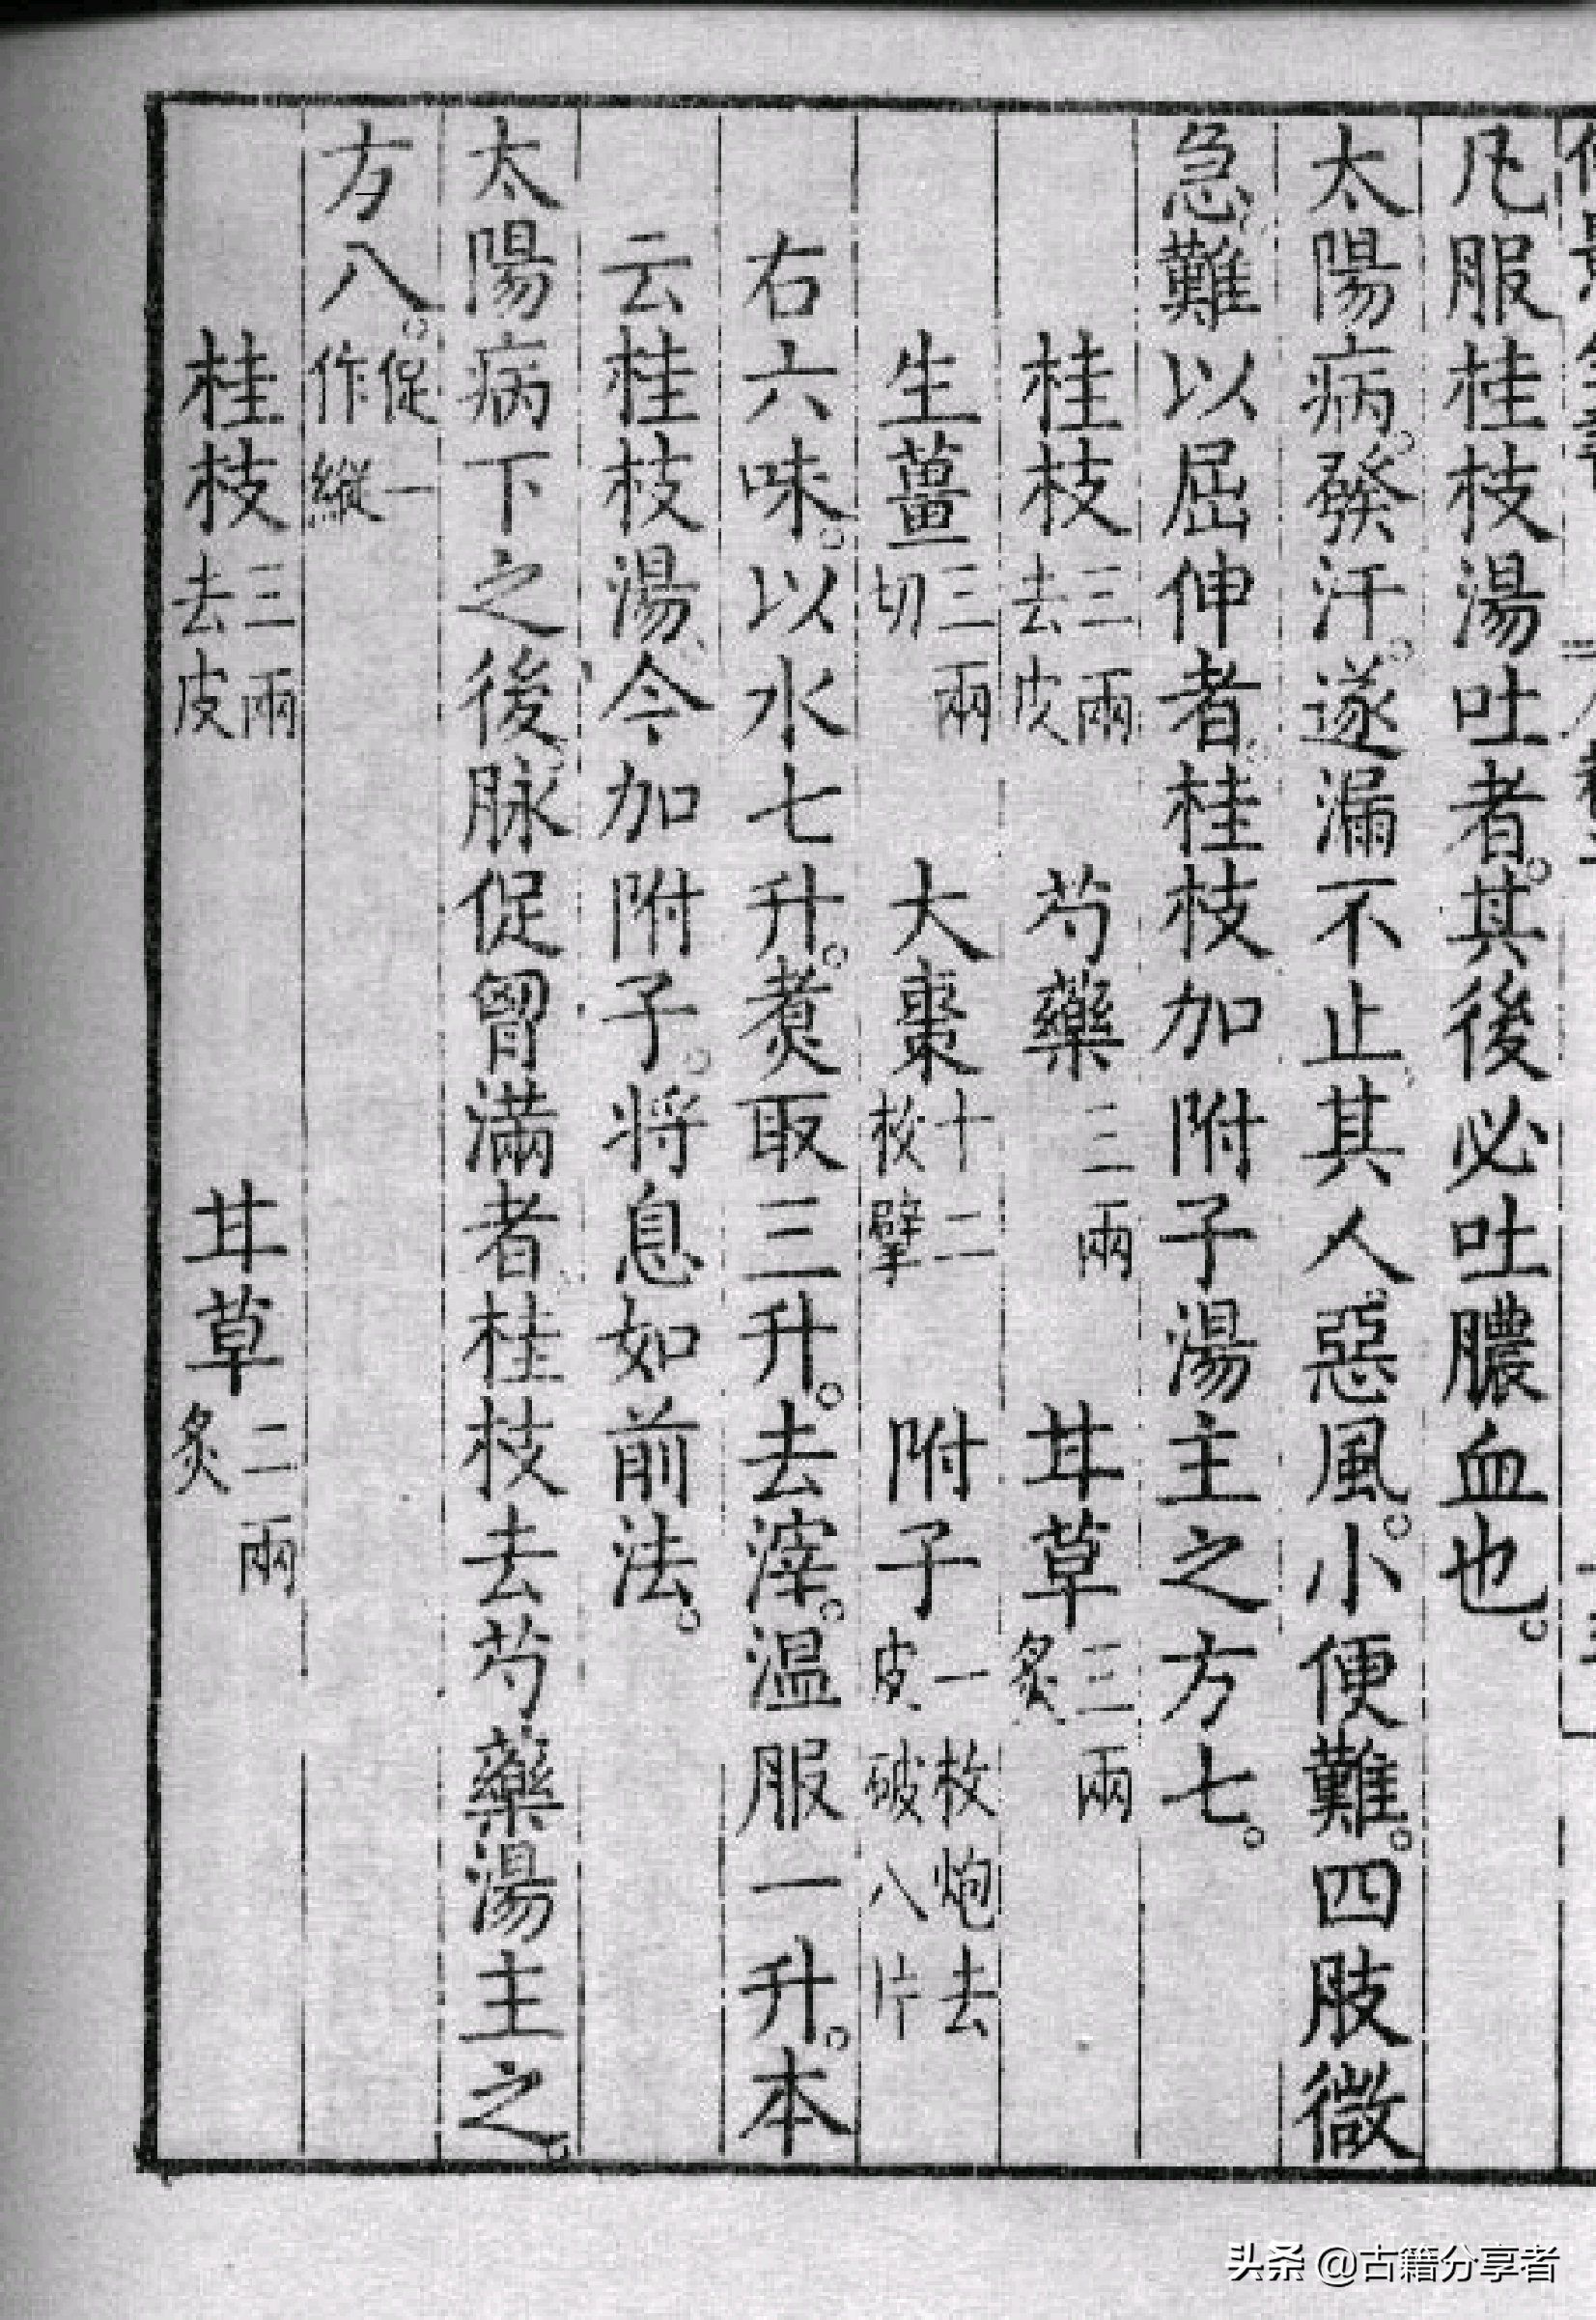 凡服桂枝湯吐者。其後必吐膿血也。
太陽病。發汗。遂漏不止。其人惡風。小便難。四肢微
急。難以屈伸者。桂枝加附子湯主之方七。
桂枝三兩去皮 芍藥三兩 甘草三兩炙
生薑三兩切 大棗十二枚擘 附子一枚炮去皮破八片
右六味。以水七升。煮取三升。去滓。温服一升。本
云桂枝湯。今加附子。將息如前法。
太陽病下之後。脉促胷滿者。桂枝去芍藥湯主之。
方八。促一作縱
桂枝三兩去皮 甘草二兩炙
头条 @古籍分享者